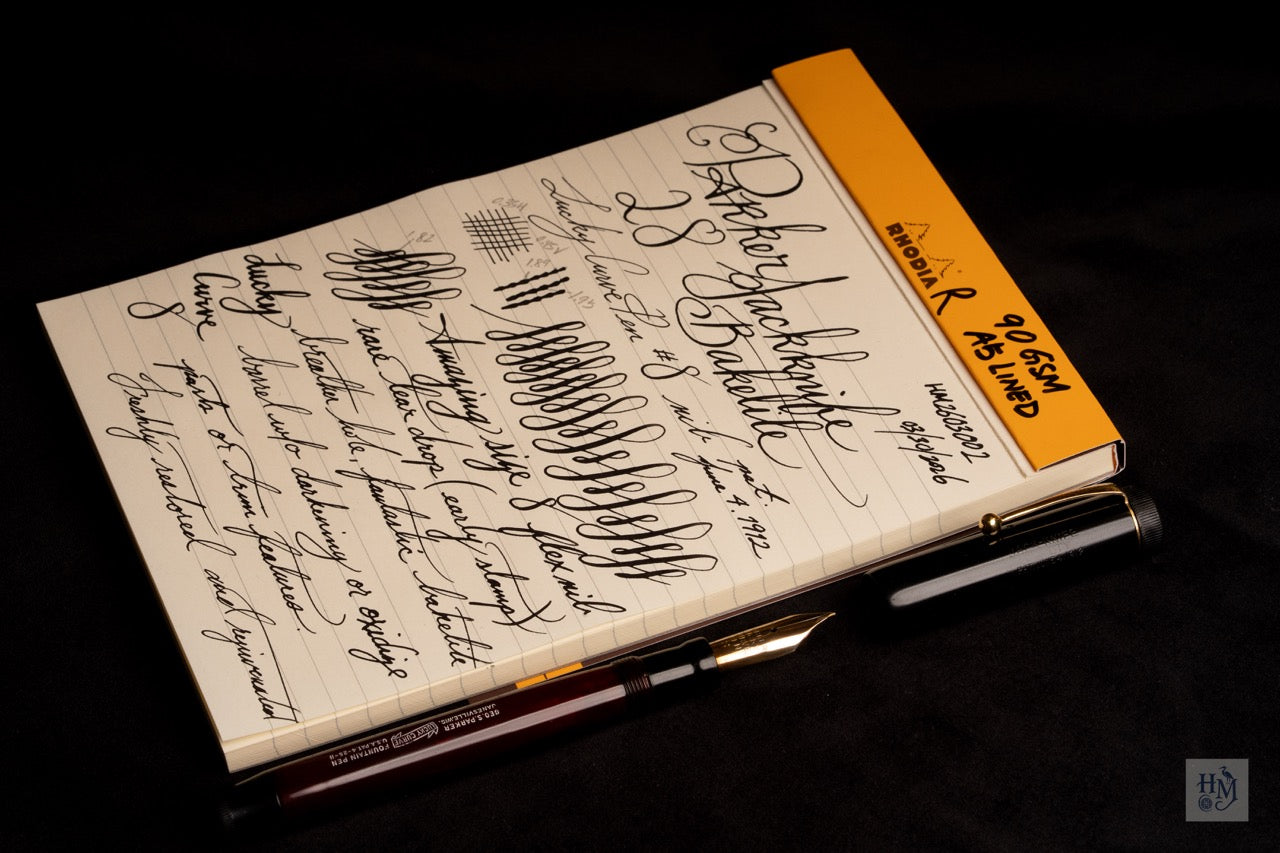 HN2603002
03/30/2026
Parker Jackknife
28 Bakelite
Lucky Curve Pen #8 nib pat.
June 4. 1912
0.35H
0.35V
1.89
1.93
1.82
Amazing size 8 flex nib
rare tear drop (early stamp)
breather hole, fantastic bakelite
barrel w/o darkening or oxidize
parts or trim features.
Freshly restored and rejuvenated
Lucky
Curve
8
RHODIA R
90 GSM
A5 LINED
GEO.S.PARKER
JANESVILLE WIS.
LUCKY CURVE
FOUNTAIN PEN
U.S.A. PAT. 4-25-11
HM